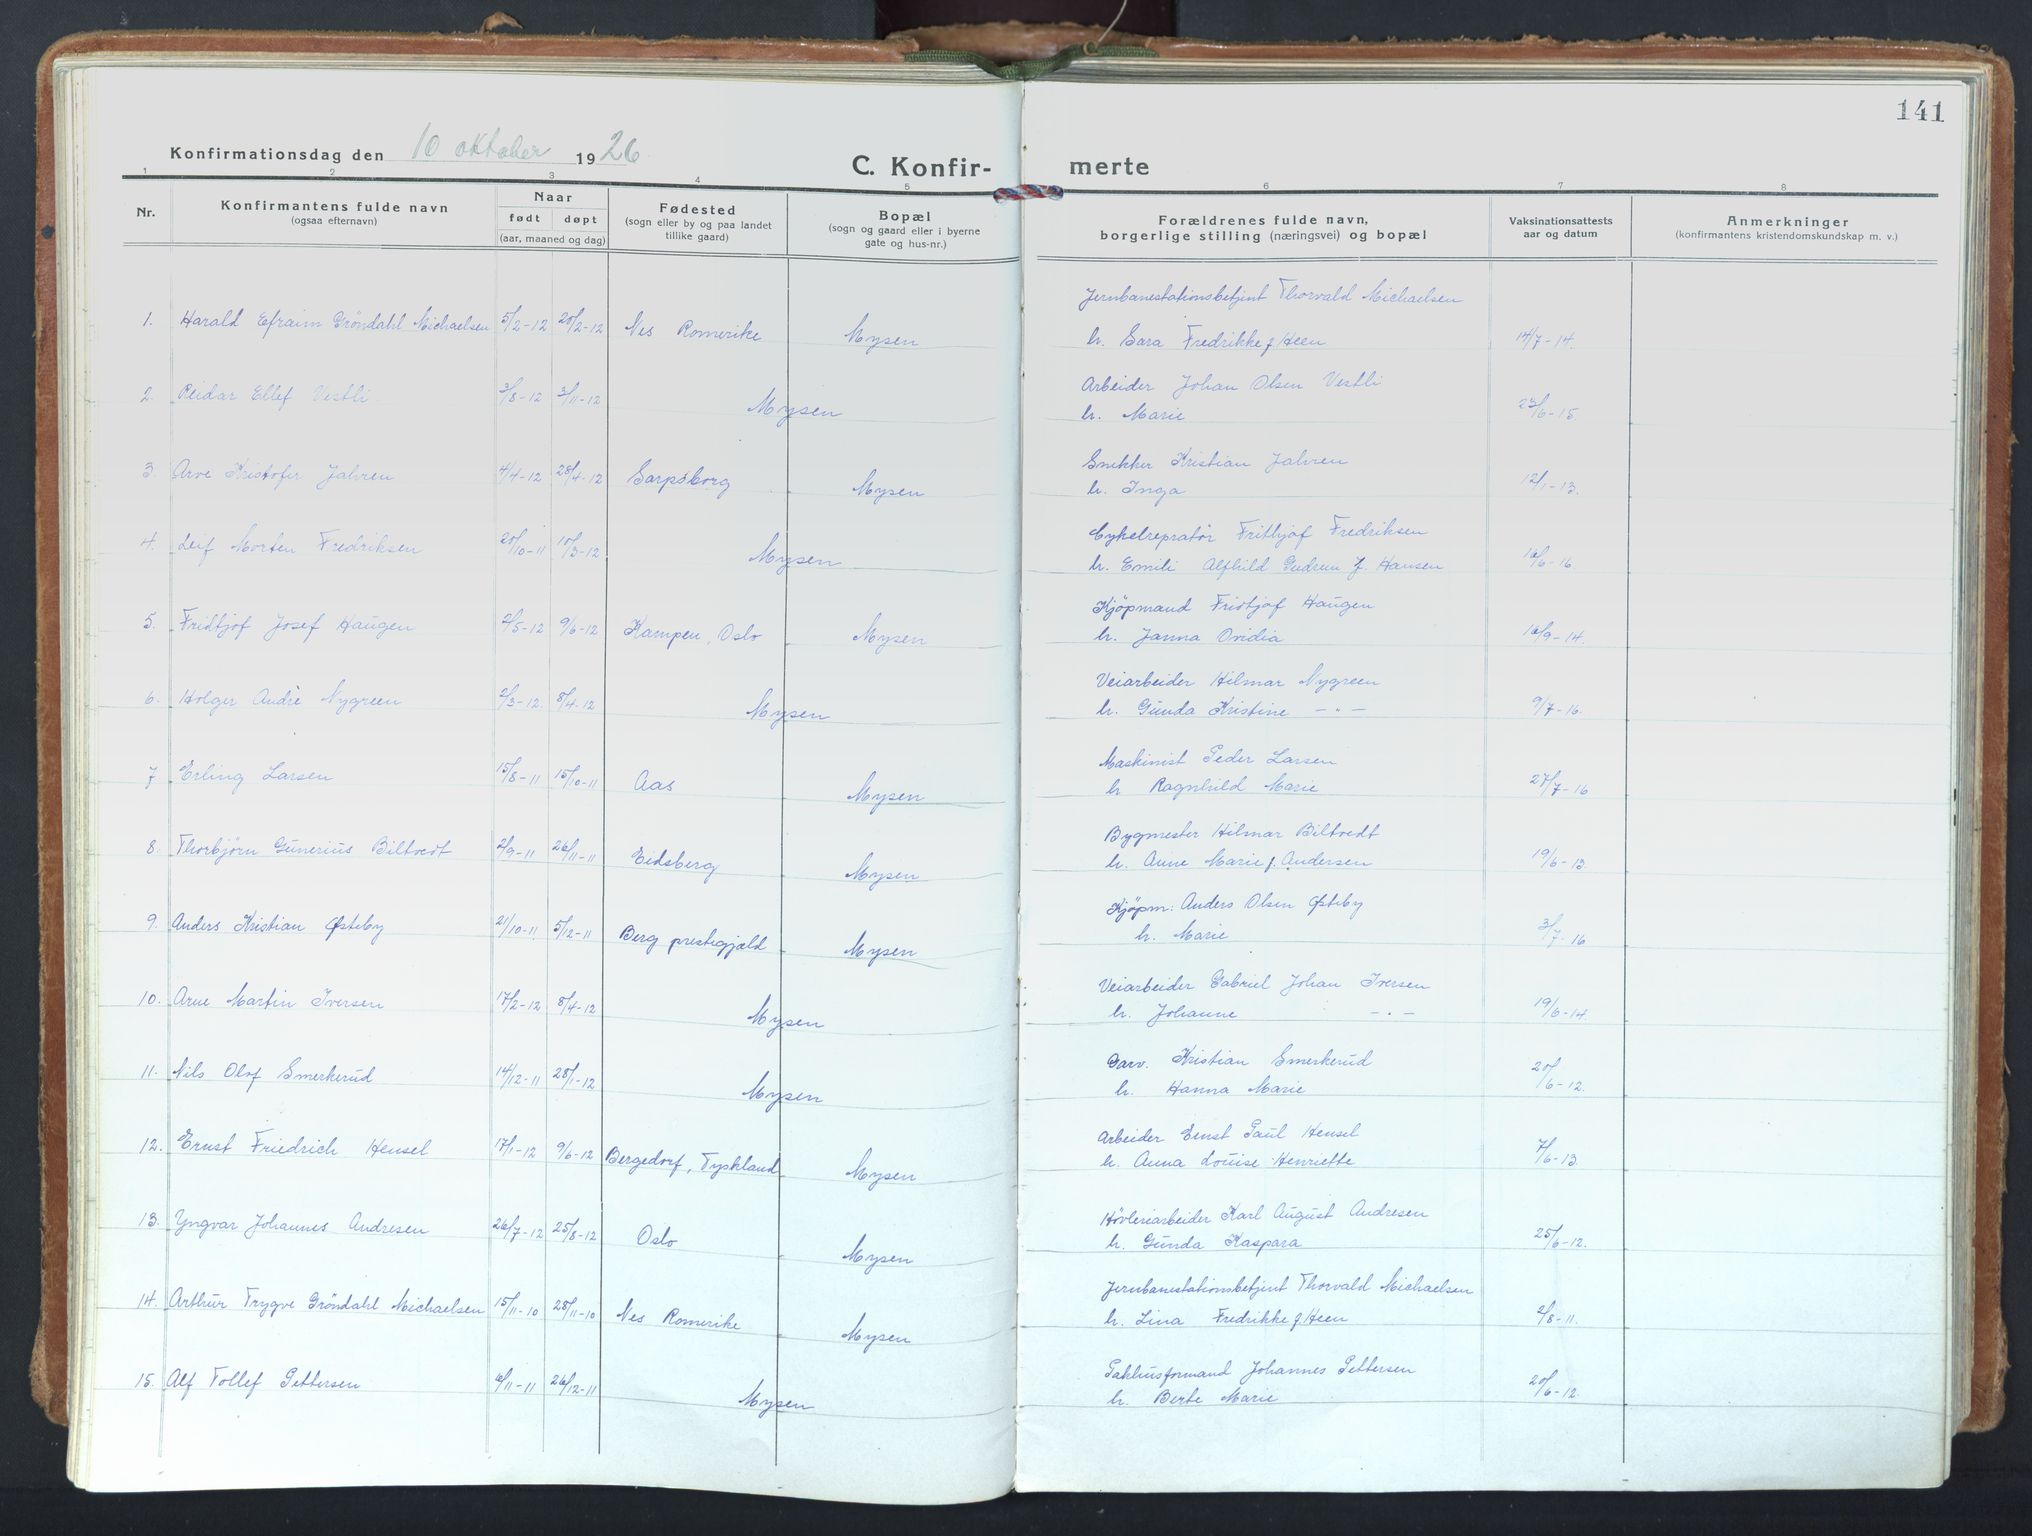 141
Konfirmationsdag den 10 oktober 1926
C. Konfir- merte
1 2 3 4 5 6 7 8
Nr.
Konfirmantens fulde navn
(ogsaa efternavn)
Naar
født døpt
(aar, maaned og dag)
Fødested
(sogn eller by og paa landet
tillike gaard)
Bopæl
(sogn og gaard eller i byerne
gate og hus-nr.)
Forældrenes fulde navn,
borgerlige stilling (næringsvei) og bopæl
Vaksinationsattests
aar og datum
Anmerkninger
(konfirmantens kristendomskundskap m. v.)
Jernbanestationsbetjent Thorvald Michaelsen
1. Harald Efraim Gröndahl Michaelsen 5/2-12 20/2-12 Nes Romerike Mysen h. Sara Fredrikke f Heen 14/7-14.
Arbeider Johan Olsen Vestli
2. Reidar Ellef Vestli 3/8-12 3/11-12 Mysen h. Marie 23/6-15
Snekker Kristian Jahren
3. Arve Kristofer Jahren 4/4-12 28/4-12 Sarpsborg Mysen h. Inga 12/1-13.
Cykelrepratör Frithjof Fredriksen
4. Leif Morten Fredriksen 20/10-11 10/3-12 Mysen h. Emili Alfhild Gudrun f. Hansen 16/6-16
Kjöpmand Fridtjof Haugen
5. Fridtjof Josef Haugen 2/5-12 9/6-12 Kampen, Oslo Mysen h. Janna Ovidia 16/9-14.
Veiarbeider Hilmar Nygreen
6. Holger Andrè Nygreen 2/3-12. 8/4-12 Mysen h. Gunda Kristine -"- 9/7-16.
Maskinist Peder Larsen
7 Erling Larsen 15/8-11 15/10-11 Aas Mysen h Ragnhild Marie 27/7-16
Bygmester Hilmar Biltvedt
8. Thorbjörn Gunerius Biltvedt 2/9-11 26/11-11 Eidsberg Mysen h. Anne Marie f. Andersen 19/6-13.
Kjöpm: Anders Olsen Østeby
9. Anders Kristian Østeby 21/10-11. 5/12-11 Berg prestegjæld Mysen h. Marie 3/7-16
Veiarbeider Gabriel Johan Iversen
10. Arne Martin Iversen 17/2-12 8/4-12 Mysen h. Johanne -"- 19/6-14.
Garv. Kristian Smerkerud
11. Nils Olof Smerkerud 14/12-11 28/1-12 Mysen h. Hanna Marie 20/6-12.
Arbeider Ernst Paul Hensel
12. Ernst Friedrich Hensel 17/1-12 9/6-12 Bergedorf, Tyskland Mysen h. Anna Louise Henriette 7/6-13
Hövleriarbeider Karl August Andresen
13. Yngvar Johannes Andresen 26/7-12 25/8-12 Oslo Mysen h. Gunda Kaspara 25/6-12.
Jernbanestationsbetjent Thorvald Michaelsen
14. Arthur Trygve Gröndahl Michaelsen 15/11-10 28/11-10 Nes Romerike Mysen h. Lina Fredrikke f Heen 2/8-11.
Pakhusformand Johannes Pettersen
15. Alf Tollef Pettersen 6/11-11 26/12-11 Mysen h. Berte Marie 20/6-12.